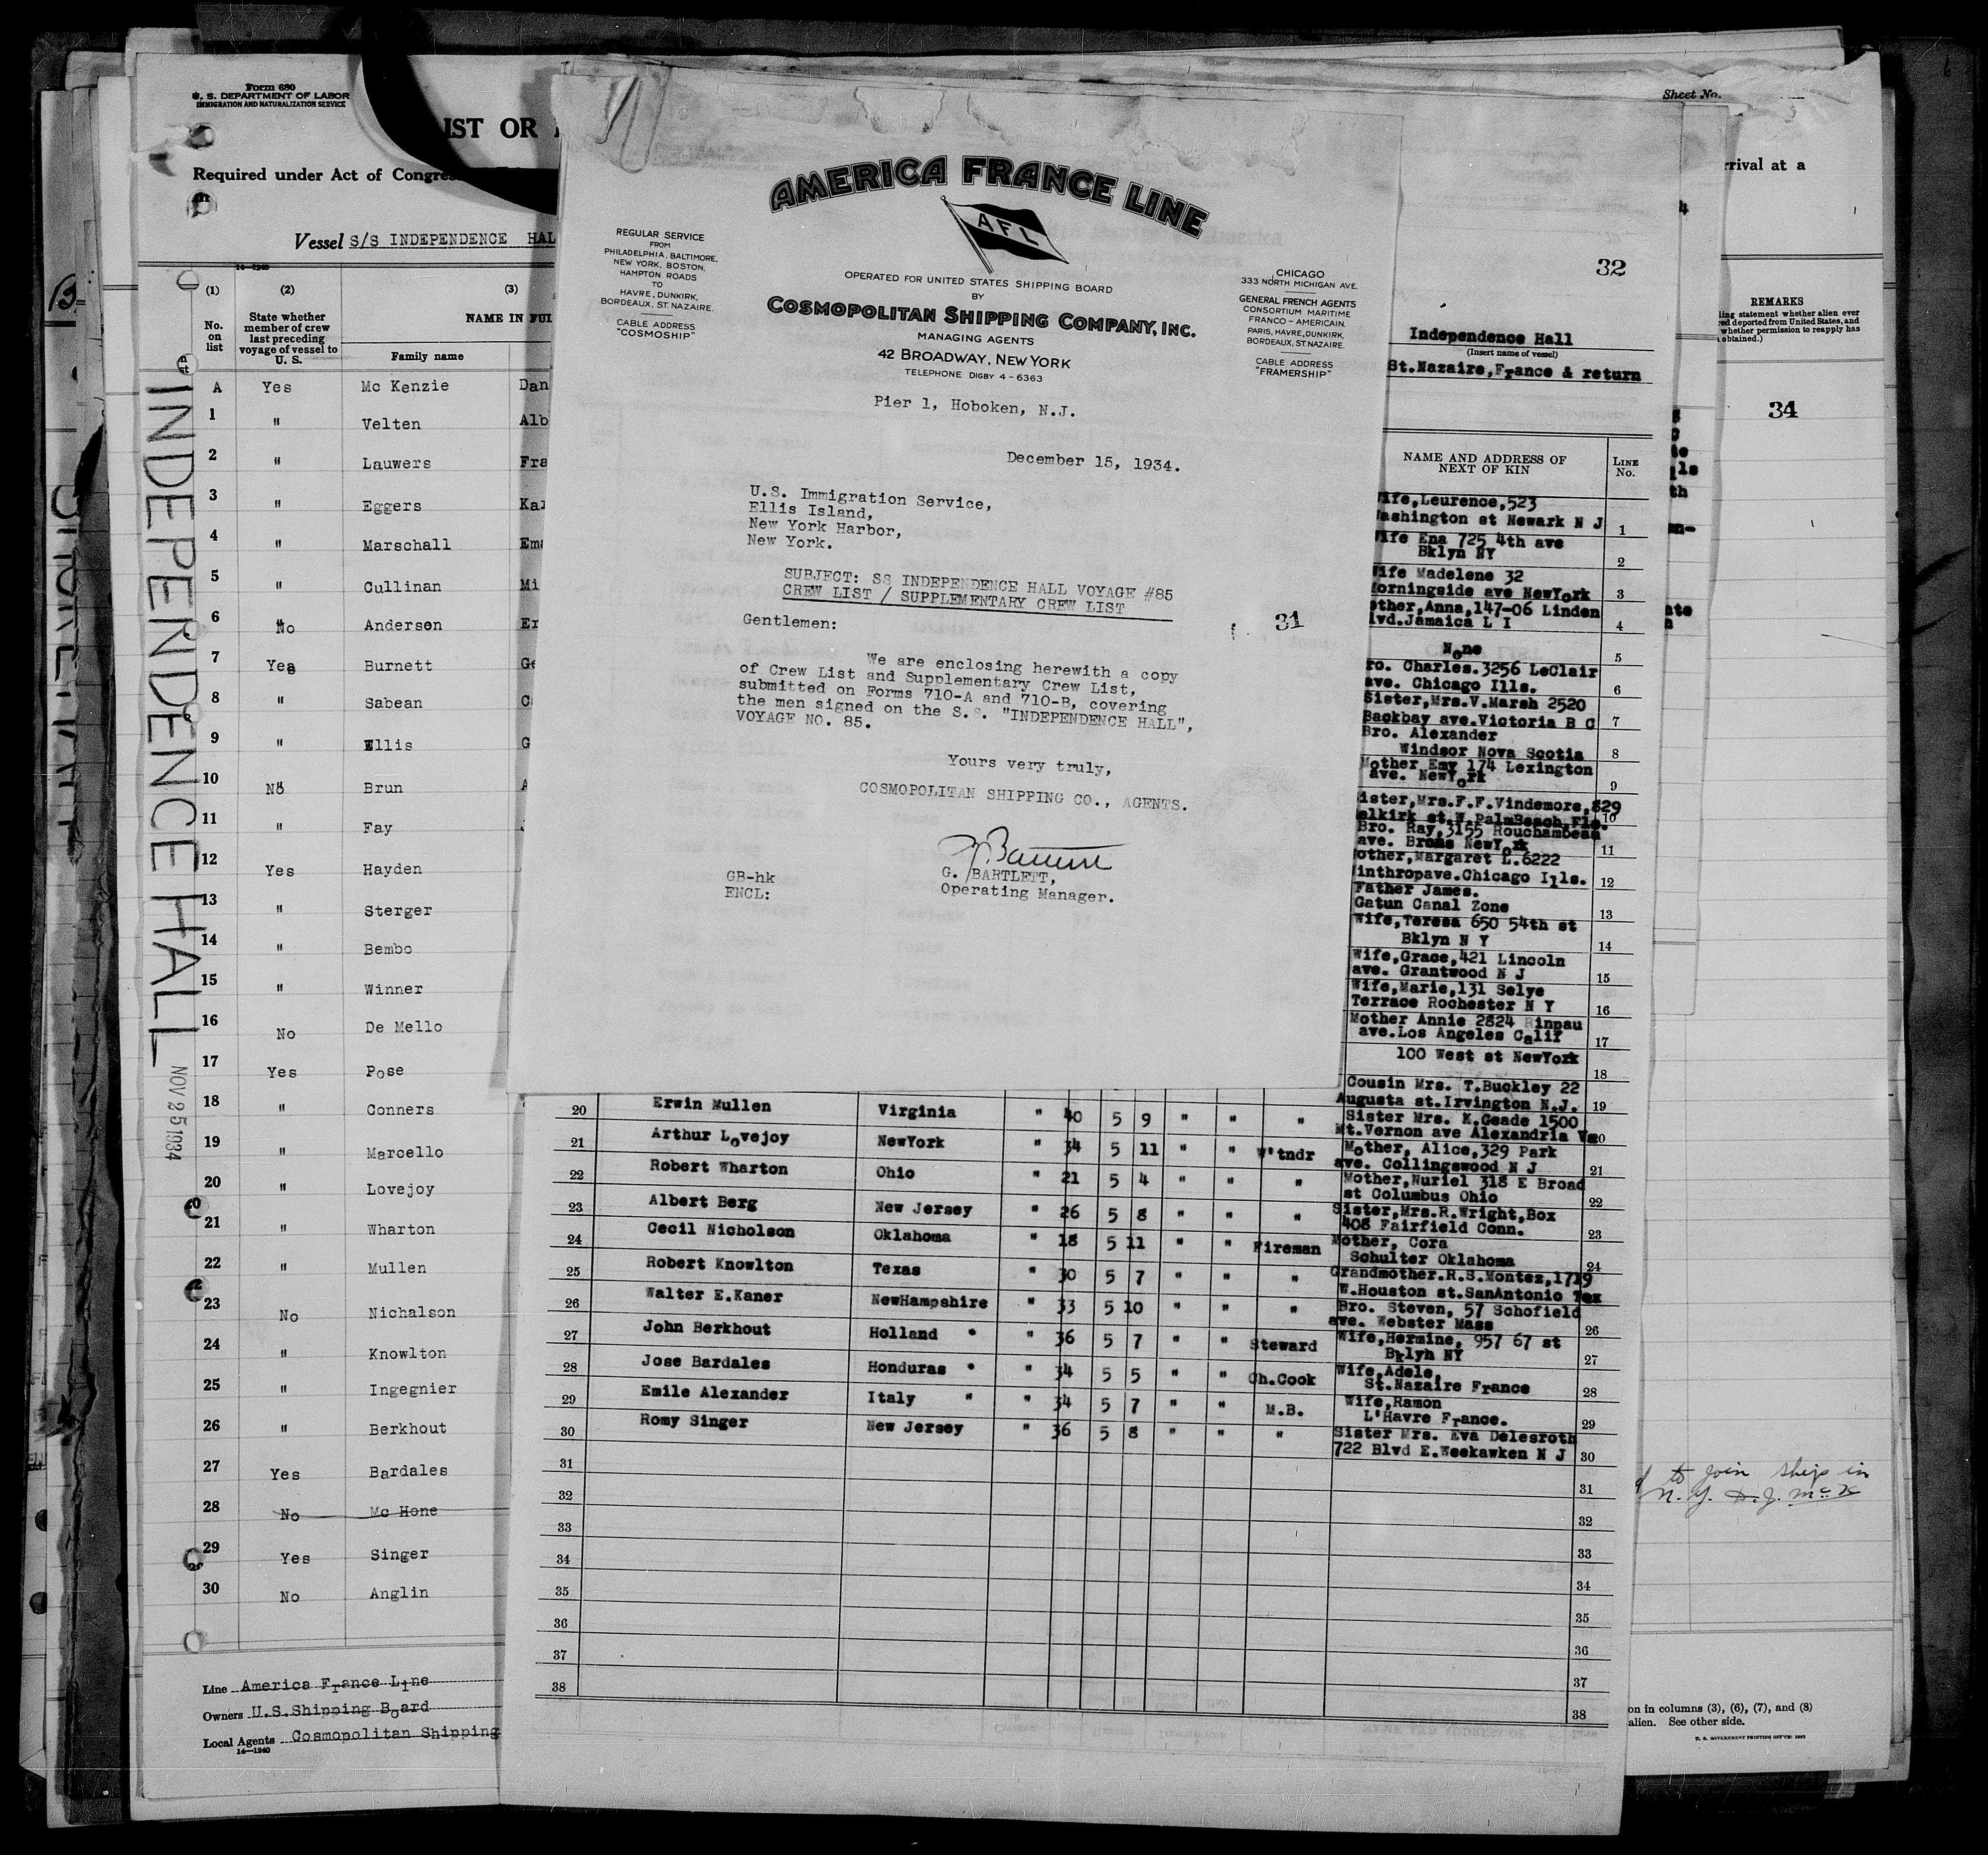 Form 680
U. S. DEPARTMENT OF LABOR
IMMIGRATION AND NATURALIZATION SERVICE
IST OR
Required under Act of Congres
Vessel S/S INDEPENDENCE HAL
14-1240
(1)
(2)
(3)
No. on list
State whether member of crew last preceding voyage of vessel to U. S.
NAME IN FUL
Family name
A Yes Mc Kenzie Dan
1 " Velten Alb
2 " Lauwers Fra
3 " Eggers Kar
4 " Marschall Ema
5 " Cullinan Mi
6 No Andersen Er
7 Yes Burnett Ge
8 " Sabean C
9 " Ellis G
10 No Brun A
11 " Fay J
12 Yes Hayden
13 " Sterger
14 " Bembo
15 " Winner
16 No De Mello
17 Yes Pose
18 " Conners
19 " Marcello
20 " Lovejoy
21 " Wharton
22 " Mullen
23 No Nichalson
24 " Knowlton
25 " Ingegnier
26 " Berkhout
27 Yes Bardales
28 No Mc Hone
29 Yes Singer
30 No Anglin
INDEPENDENCE HALL
NOV 25 1934
Line America France Line
Owners U.S.Shipping Board
Local Agents Cosmopolitan Shipping
14-1240
AMERICA FRANCE LINE
AFL
REGULAR SERVICE
FROM
PHILADELPHIA, BALTIMORE,
NEW YORK, BOSTON,
HAMPTON ROADS
TO
HAVRE, DUNKIRK,
BORDEAUX, ST. NAZAIRE.
CABLE ADDRESS
"COSMOSHIP"
OPERATED FOR UNITED STATES SHIPPING BOARD
BY
COSMOPOLITAN SHIPPING COMPANY, INC.
MANAGING AGENTS
42 BROADWAY, NEW YORK
TELEPHONE DIGBY 4-6363
CHICAGO
333 NORTH MICHIGAN AVE.
GENERAL FRENCH AGENTS
CONSORTIUM MARITIME
FRANCO-AMERICAIN.
PARIS, HAVRE, DUNKIRK,
BORDEAUX, ST. NAZAIRE.
CABLE ADDRESS
"FRAMERSHIP"
Pier 1, Hoboken, N.J.
December 15, 1934.
U.S. Immigration Service,
Ellis Island,
New York Harbor,
New York.
SUBJECT: SS INDEPENDENCE HALL VOYAGE #85
CREW LIST / SUPPLEMENTARY CREW LIST
31
Gentlemen:
We are enclosing herewith a copy
of Crew List and Supplementary Crew List,
submitted on Forms 710-A and 710-B, covering
the men signed on the S.S. "INDEPENDENCE HALL",
VOYAGE NO. 85.
Yours very truly,
COSMOPOLITAN SHIPPING CO., AGENTS.
G. BARTLETT,
Operating Manager.
GB-hk
ENCL:
32
Independence Hall
(Insert name of vessel)
St.Nazaire,France & return
NAME AND ADDRESS OF NEXT OF KIN
LINE No.
ife,Leurence,523
ashington st Newark N J 1
ife Ena 725 4th ave
Bklyn NY 2
ife Madelene 32
orningside ave NewYork 3
other,Anna,147-06 Linden
lvd.Jamaica L I 4
None 5
ro. Charles.3256 LeClair
ave. Chicago Ills. 6
Sister,Mrs.V.Marsh 2520
Backbay ave.Victoria B C 7
Bro. Alexander
Windsor Nova Scotia 8
Mother Emy 174 Lexington
ave. NewYork 9
ister,Mrs.F.F.Vindemore,829
elkirk st.W.PalmBeach,Fla. 10
Bro. Ray,3155 Rouchambeau
ave. Bronx NewYork 11
other,Margaret L.6222
inthropave.Chicago Ills. 12
Father James.
Gatun Canal Zone 13
Wife,Teresa 650 54th st
Bklyn N Y 14
Wife,Grace,421 Lincoln
ave. Grantwood N J 15
Wife,Marie,131 Selye
Terrace Rochester N Y 16
Mother Annie 2824 Rinpau
ave.Los Angeles Calif 17
100 West st NewYork 18
Cousin Mrs. T.Buckley 22
Augusta st.Irvington N.J. 19
20 Erwin Mullen Virginia " 40 5 9 " " " Sister Mrs. K.Geade 1500
Mt.Vernon ave Alexandria Va 20
21 Arthur Lovejoy NewYork " 34 5 11 " " W'tndr Mother, Alice,329 Park
ave. Collingswood N J 21
22 Robert Wharton Ohio " 21 5 4 " " " Mother,Nuriel 318 E Broad
st Columbus Ohio 22
23 Albert Berg New Jersey " 26 5 8 " " " Sister,Mrs.R.Wright,Box
408 Fairfield Conn. 23
24 Cecil Nicholson Oklahoma " 18 5 11 " " Fireman Mother, Cora
Schulter Oklahoma 24
25 Robert Knowlton Texas " 30 5 7 " " " Grandmother.R.S.Montez,1719
W.Houston st.SanAntonio Tex
26 Walter E.Kaner NewHampshire " 33 5 10 " " " Bro. Steven, 57 Schofield
ave. Webster Mass 26
27 John Berkhout Holland " " 36 5 7 " " Steward Wife,Hermine, 957 67 st
Bklyn NY 27
28 Jose Bardales Honduras " " 34 5 5 " " Ch.Cook Wife,Adele,
St.Nazaire France 28
29 Emile Alexander Italy " " 34 5 7 " " M.B. Wife,Ramon
L'Havre France. 29
30 Romy Singer New Jersey " 36 5 8 " " " Sister Mrs. Eva Delesroth
722 Blvd E.Weekawken N J 30
31 31
32 32
33 33
34 34
35 35
36 36
37 37
38 38
Sheet No.
rrival at a
REMARKS
ling statement whether alien ever
ed deported from United States, and
whether permission to reapply has
obtained.)
34
to join ship in
N. Y. D.J. McK
on in columns (3), (6), (7), and (8)
alien. See other side.
U. S. GOVERNMENT PRINTING OFFICE